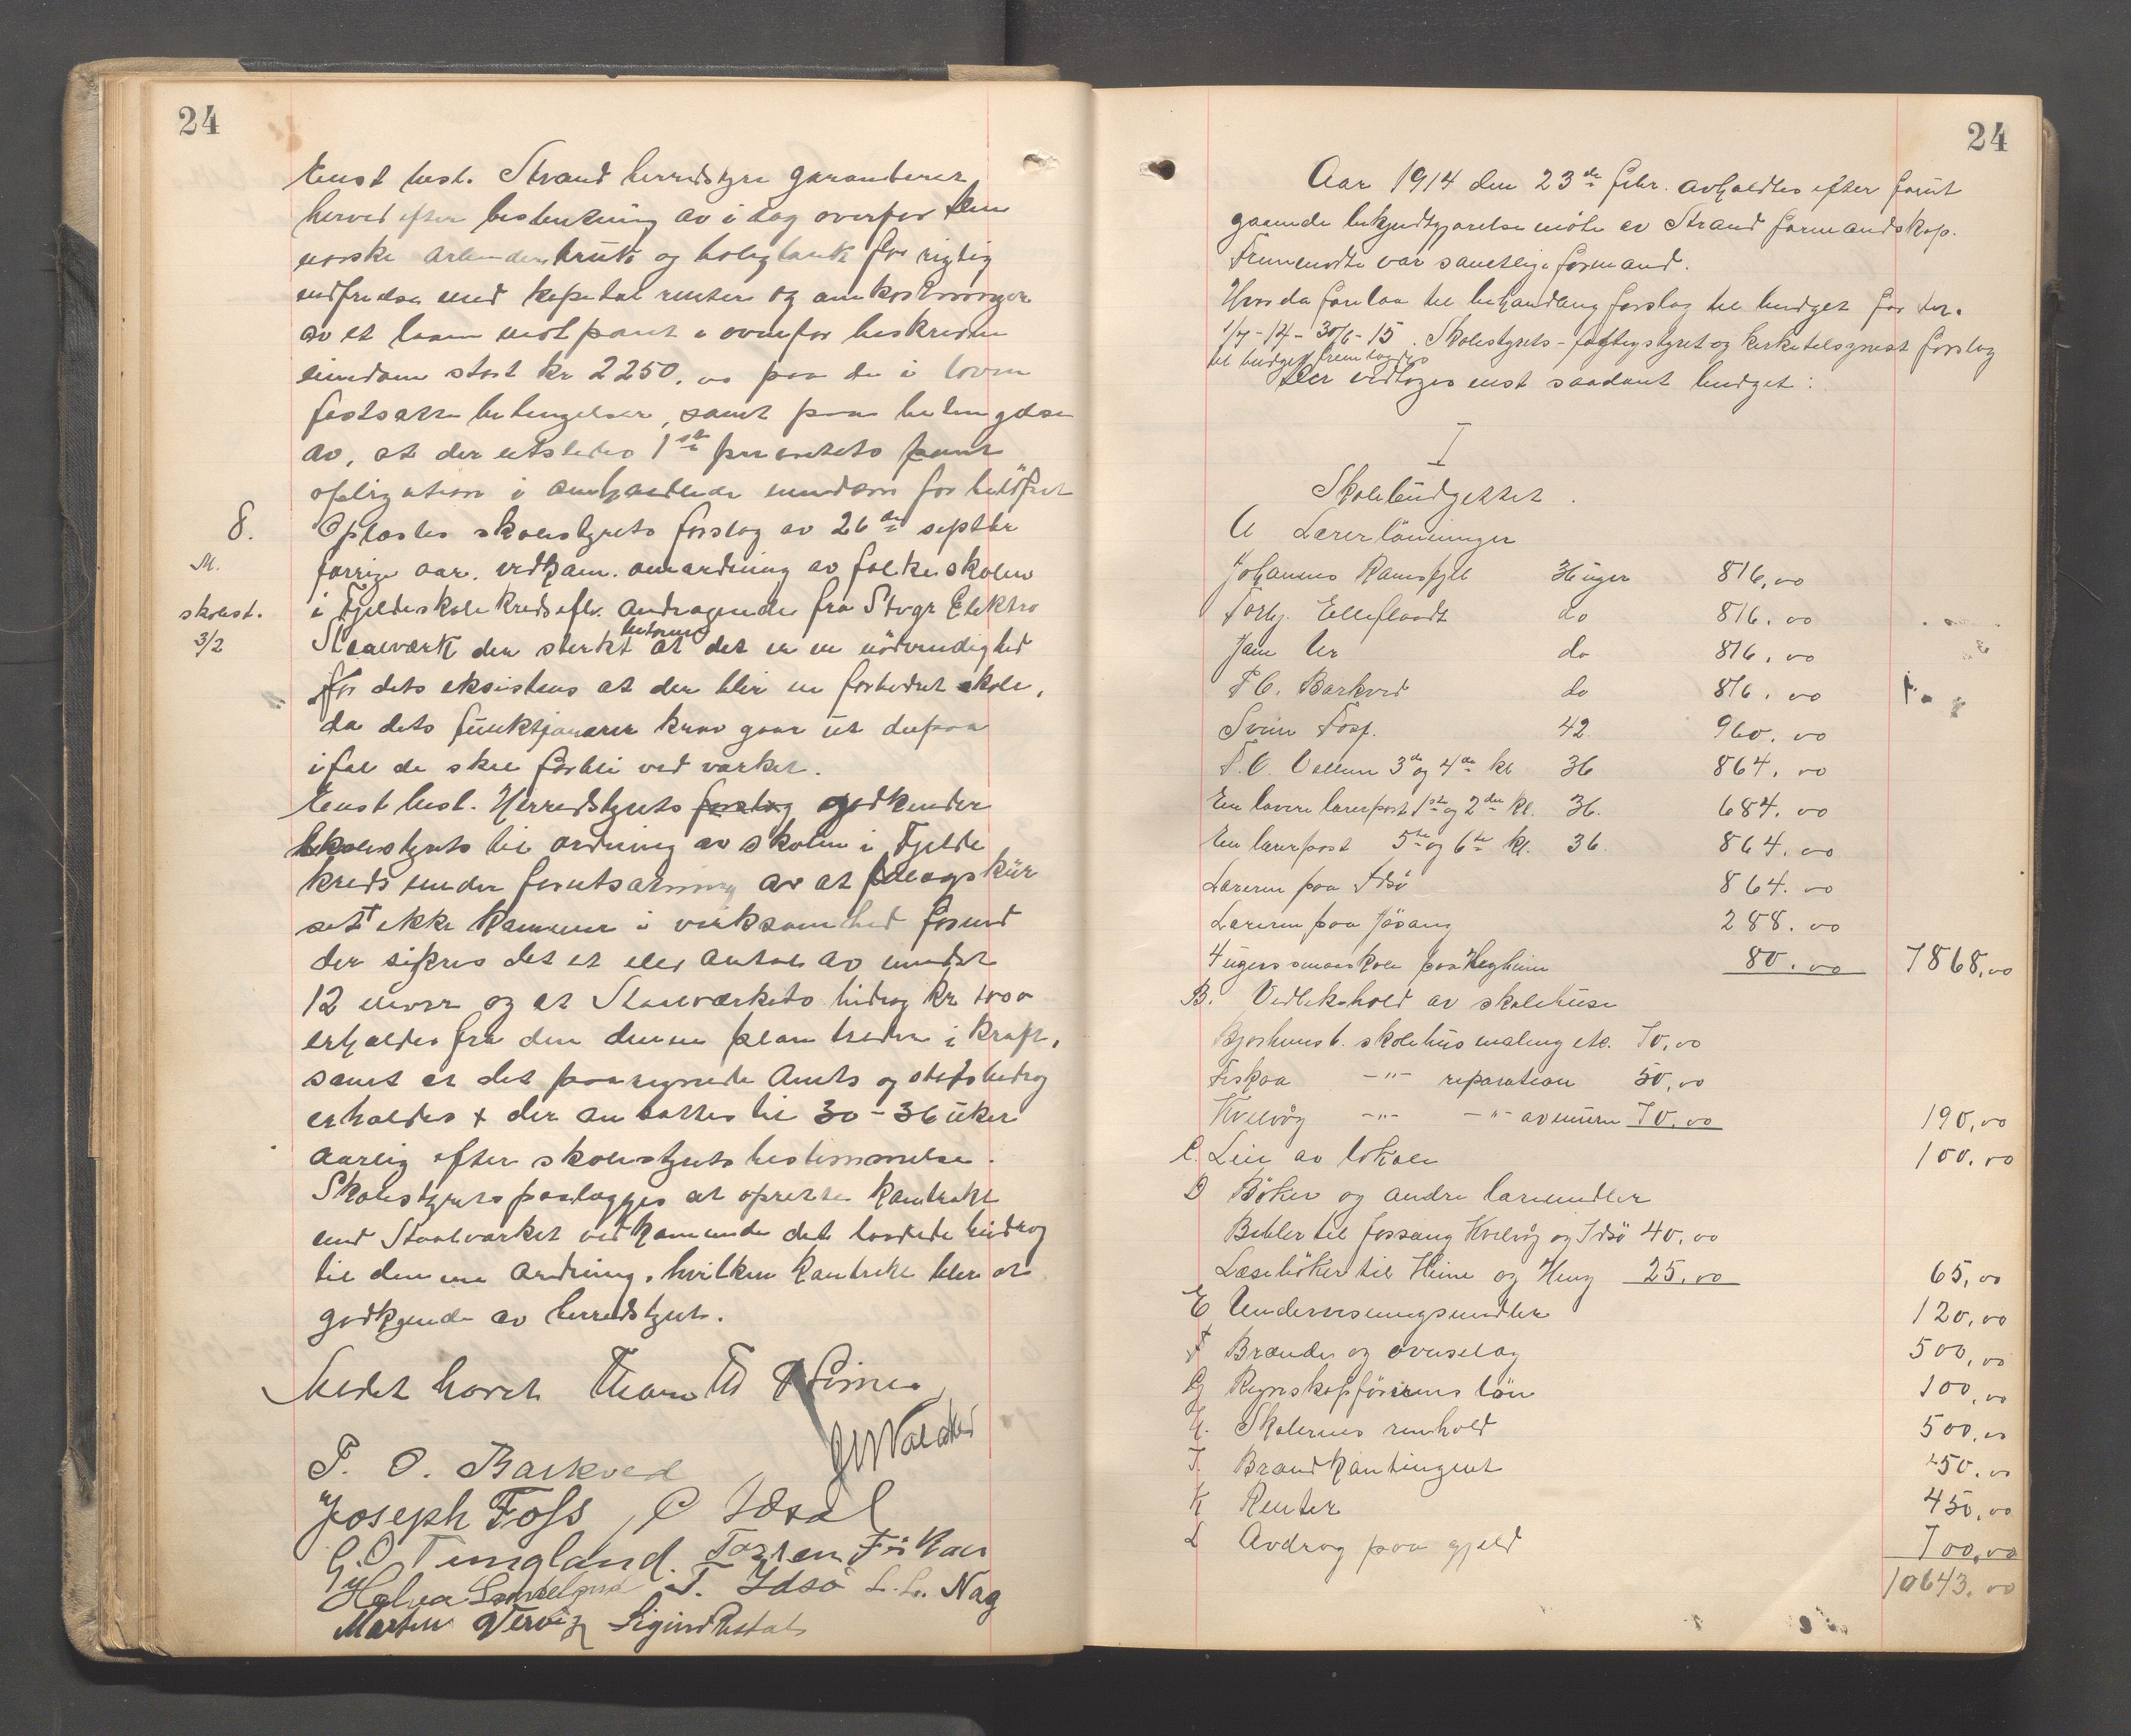 24
Enst besl. Strand herredstyre garanterer
herved efter beslutning av idag overfor den
norske arbeiderbruk og boligbank for rigtig
indfrielse med kapital renter og omkostninger
av et laan mot pant i ovenfor beskrevne
eiendom stort kr 2250.00 paa de i loven
fastsatte betingelser, samt paa betingelse
av, at der utstedes 1ste prioritets pant
obligation i omhandlede eiendom for beløpet
8. Oplæstes skolestyrets forslag av 26de septbr
M. forrige aar. vedkom. omordning av folkeskolen
skolest. i Fjelde skolekreds eftr. andragende fra Stvgr Elektro
3/2 Staalverk der sterkt betoner at det er en nödvendighed
for dets eksistens at der blir en forbedret skole,
da dets funktjonærer krav gaar ut derpaa
ifal de skal forbli ved verket.
Enst besl. Herredstyrets forslag godkender
skolestyrets til ordning av skolen i Fjelde
kreds under forutsætning av at tillægskur
set ikke kommer i virksomhed forend
der sikres det et elev antal av mindst
12 elever og at Staalverkets bidrag kr 1000
erholdes fra den denne plan treder i kraft,
samt at det paaregnede Amts og statsbidrag
erholdes + der ansættes til 30-36 uker
aarlig efter skolestyrets bestemmelse.
Skolestyret paalægges at oprette kontrakt
med Staalverket vedkommende det lovede bidrag
til denne ordning. hvilken kontrakt blir at
godkjende av herredstyret.
Mødet hævet Thom Td
P. O. Barkved
Joseph Foss, O Idsal
G O Tungland. Torsen Fiskaa
T. Idsø L. L. Nag
Morten Vervig Sigurd
24
Aar 1914 den 23de febr. avholdtes efter forut
gaaende bekjendtgjørelse møte av Strand formandskap.
Fremmødte var samtlige formænd.
Hvor da forelaa til behandling forslag til budget for ter.
1/7-14 - 30/6-15. Skolestyrets- fattigstyret og kirketilsynets forslag
til budget fremlagdes
Der vedtoges enst saadant budget:
I
Skolebudgettet.
A Lærerlönninger
Johannes Ramsfjell 36 uger 816,00
Torbj. Elleflaadt do 816.00
Jan Ur do 816,00
P O. Barkved do 816.00
Svein Fosp. 42 960.00
T. O. Vallum 3de og 4de kl 36 864.00
En lavere lærerpost 1ste og 2den kl. 36. 684.00
En lærerpost 5te og 6te kl. 36. 864.00
Læreren paa Idsö 864.00
Læreren paa Jösang 288.00
4 ugers smaaskole paa Hegheim 80.00 7868,00
B. Vedlikehold av skolehuse
Bjørheimsb. skolehus maling etc. 70,00
Fiskaa -"- reparation 50,00
Kvelvög -"- -"- av muren 70.00 190,00
C. Leie av lokale 100.00
D Böker og andre læremidler
Bibler til Jössang Kvelvög og Idsö 40.00
Læseböker til Heine og Heng 25.00 65,00
E Undervisningsmidler 120,00
F Brænde og ovnselag 500,00
G Regnskapförerens lön 100,00
H. Skolernes renhold 500,00
I. Brandkontingent 50.00
K Renter 450,00
L Avdrag paa gjeld 700,00
10643.00